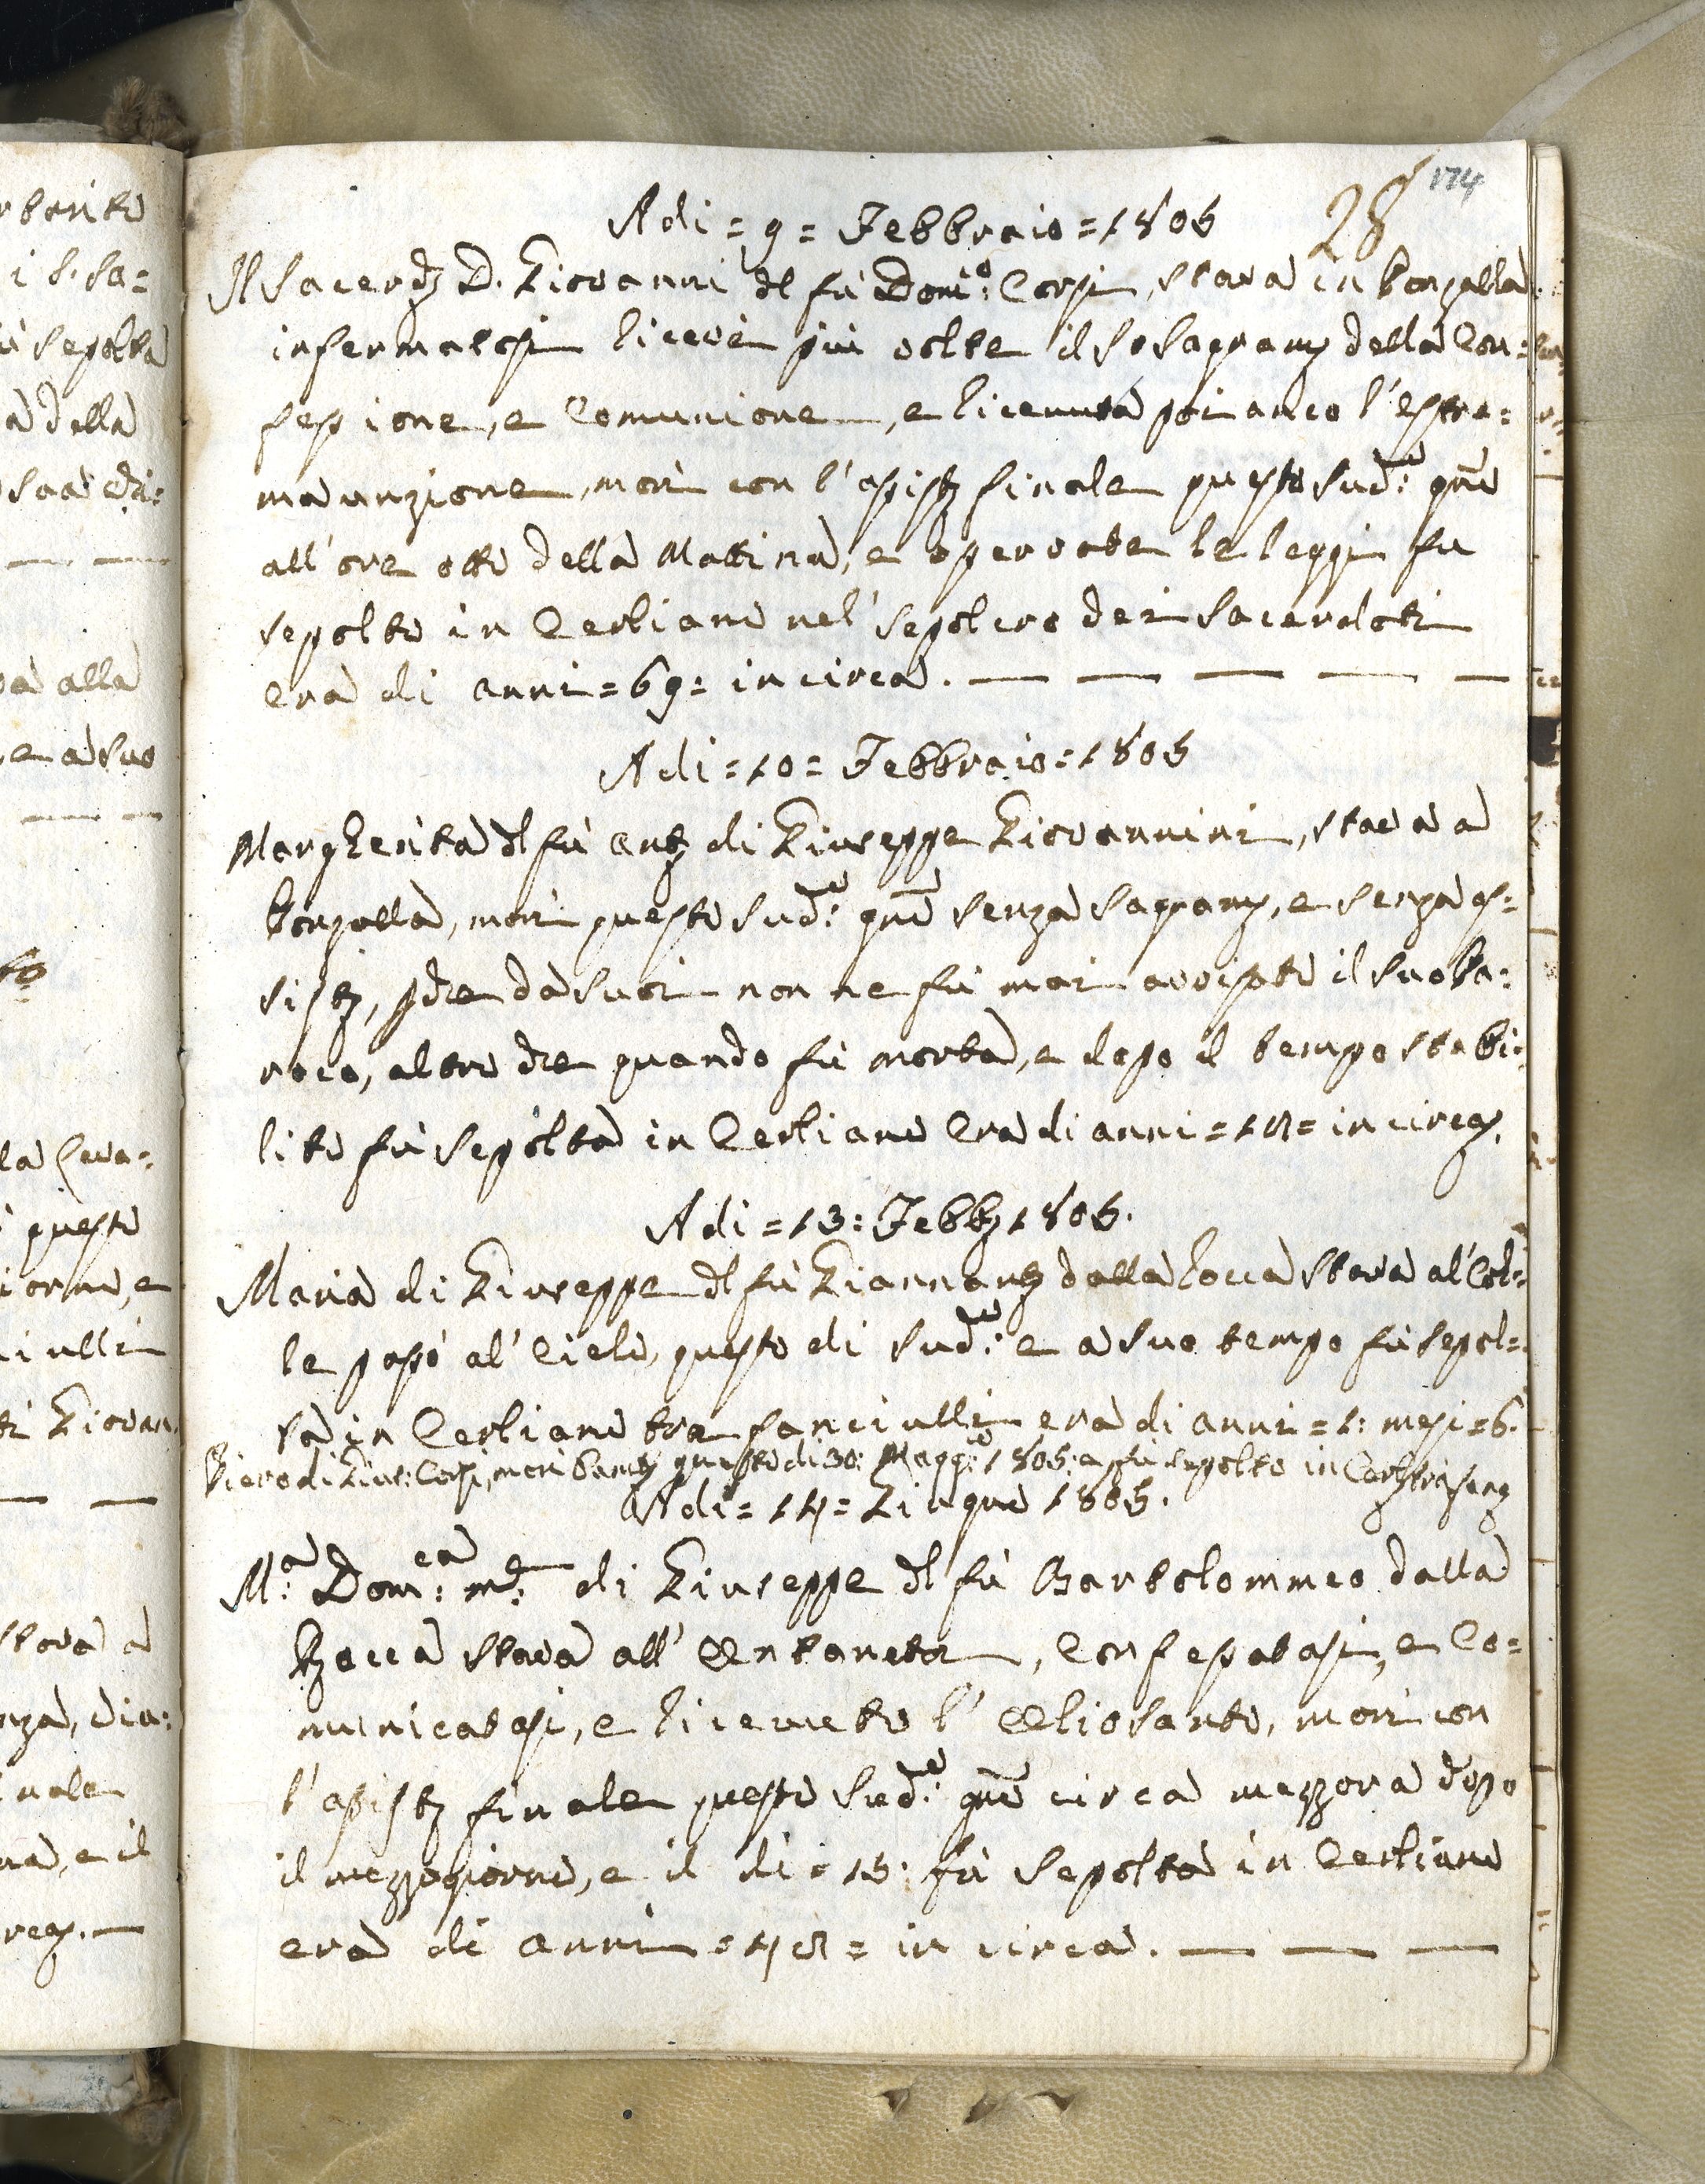 174
28
Adi = 9 = Febbraio = 1805
Il Sacerd. D. Giovanni dl fù Dom:co Corsi, stava in Bongalla
infermatosi ricevè più volte il So Sagram. della Con=
fessione, e Comunione, e ricevuta poi anco l'estre=
ma unzione, morì con l'assist. finale questo sud:o gno
all'ore otto della Mattina, e osservate le leggi fu
sepolto in Cerliano nel' sepolcro dei Sacerdoti
era di anni = 69 = in circa. — — — — —
Adi = 10 = Febbraio = 1805
Margherita dl fù Ant. di Giuseppe Giovannini, stava a
Bongalla, morì questo sud:o gno senza sagram., e senza as=
sist., pche da suoi non ne fù mai avvisato il suo Pa=
roco, altro che quando fù morta, e dopo il tempo stabi=
lito fù sepolta in Cerliano Era di anni = = in circa.
Adi = 13: Febb. 1805.
Maria di Giuseppe dl fù Giannant. dalla Rocca stava al' Col=
le passò al' Cielo, questo di sud:o e a suo tempo fù sepol=
ta in Cerliano tra fanciulli era di anni = 1: mesi = 6.
Piero di Gius: Corsi, morì questo di 30: Magg:o 1805: e fù sepolto in
Adi = 14 = Giugno 1805.
M:a Dom:ca m:e di Giuseppe dl fù Bartolommeo dalla
Rocca stava all' , Confessatasi, e Co=
municatasi, e ricevuto l' Oliosanto, morì con
l'assist. finale questo sud:o gno circa mezzora dopo
il mezzogiorno, e il di = 15: fù sepolta in Cerliano
era di anni = = in circa. — — —